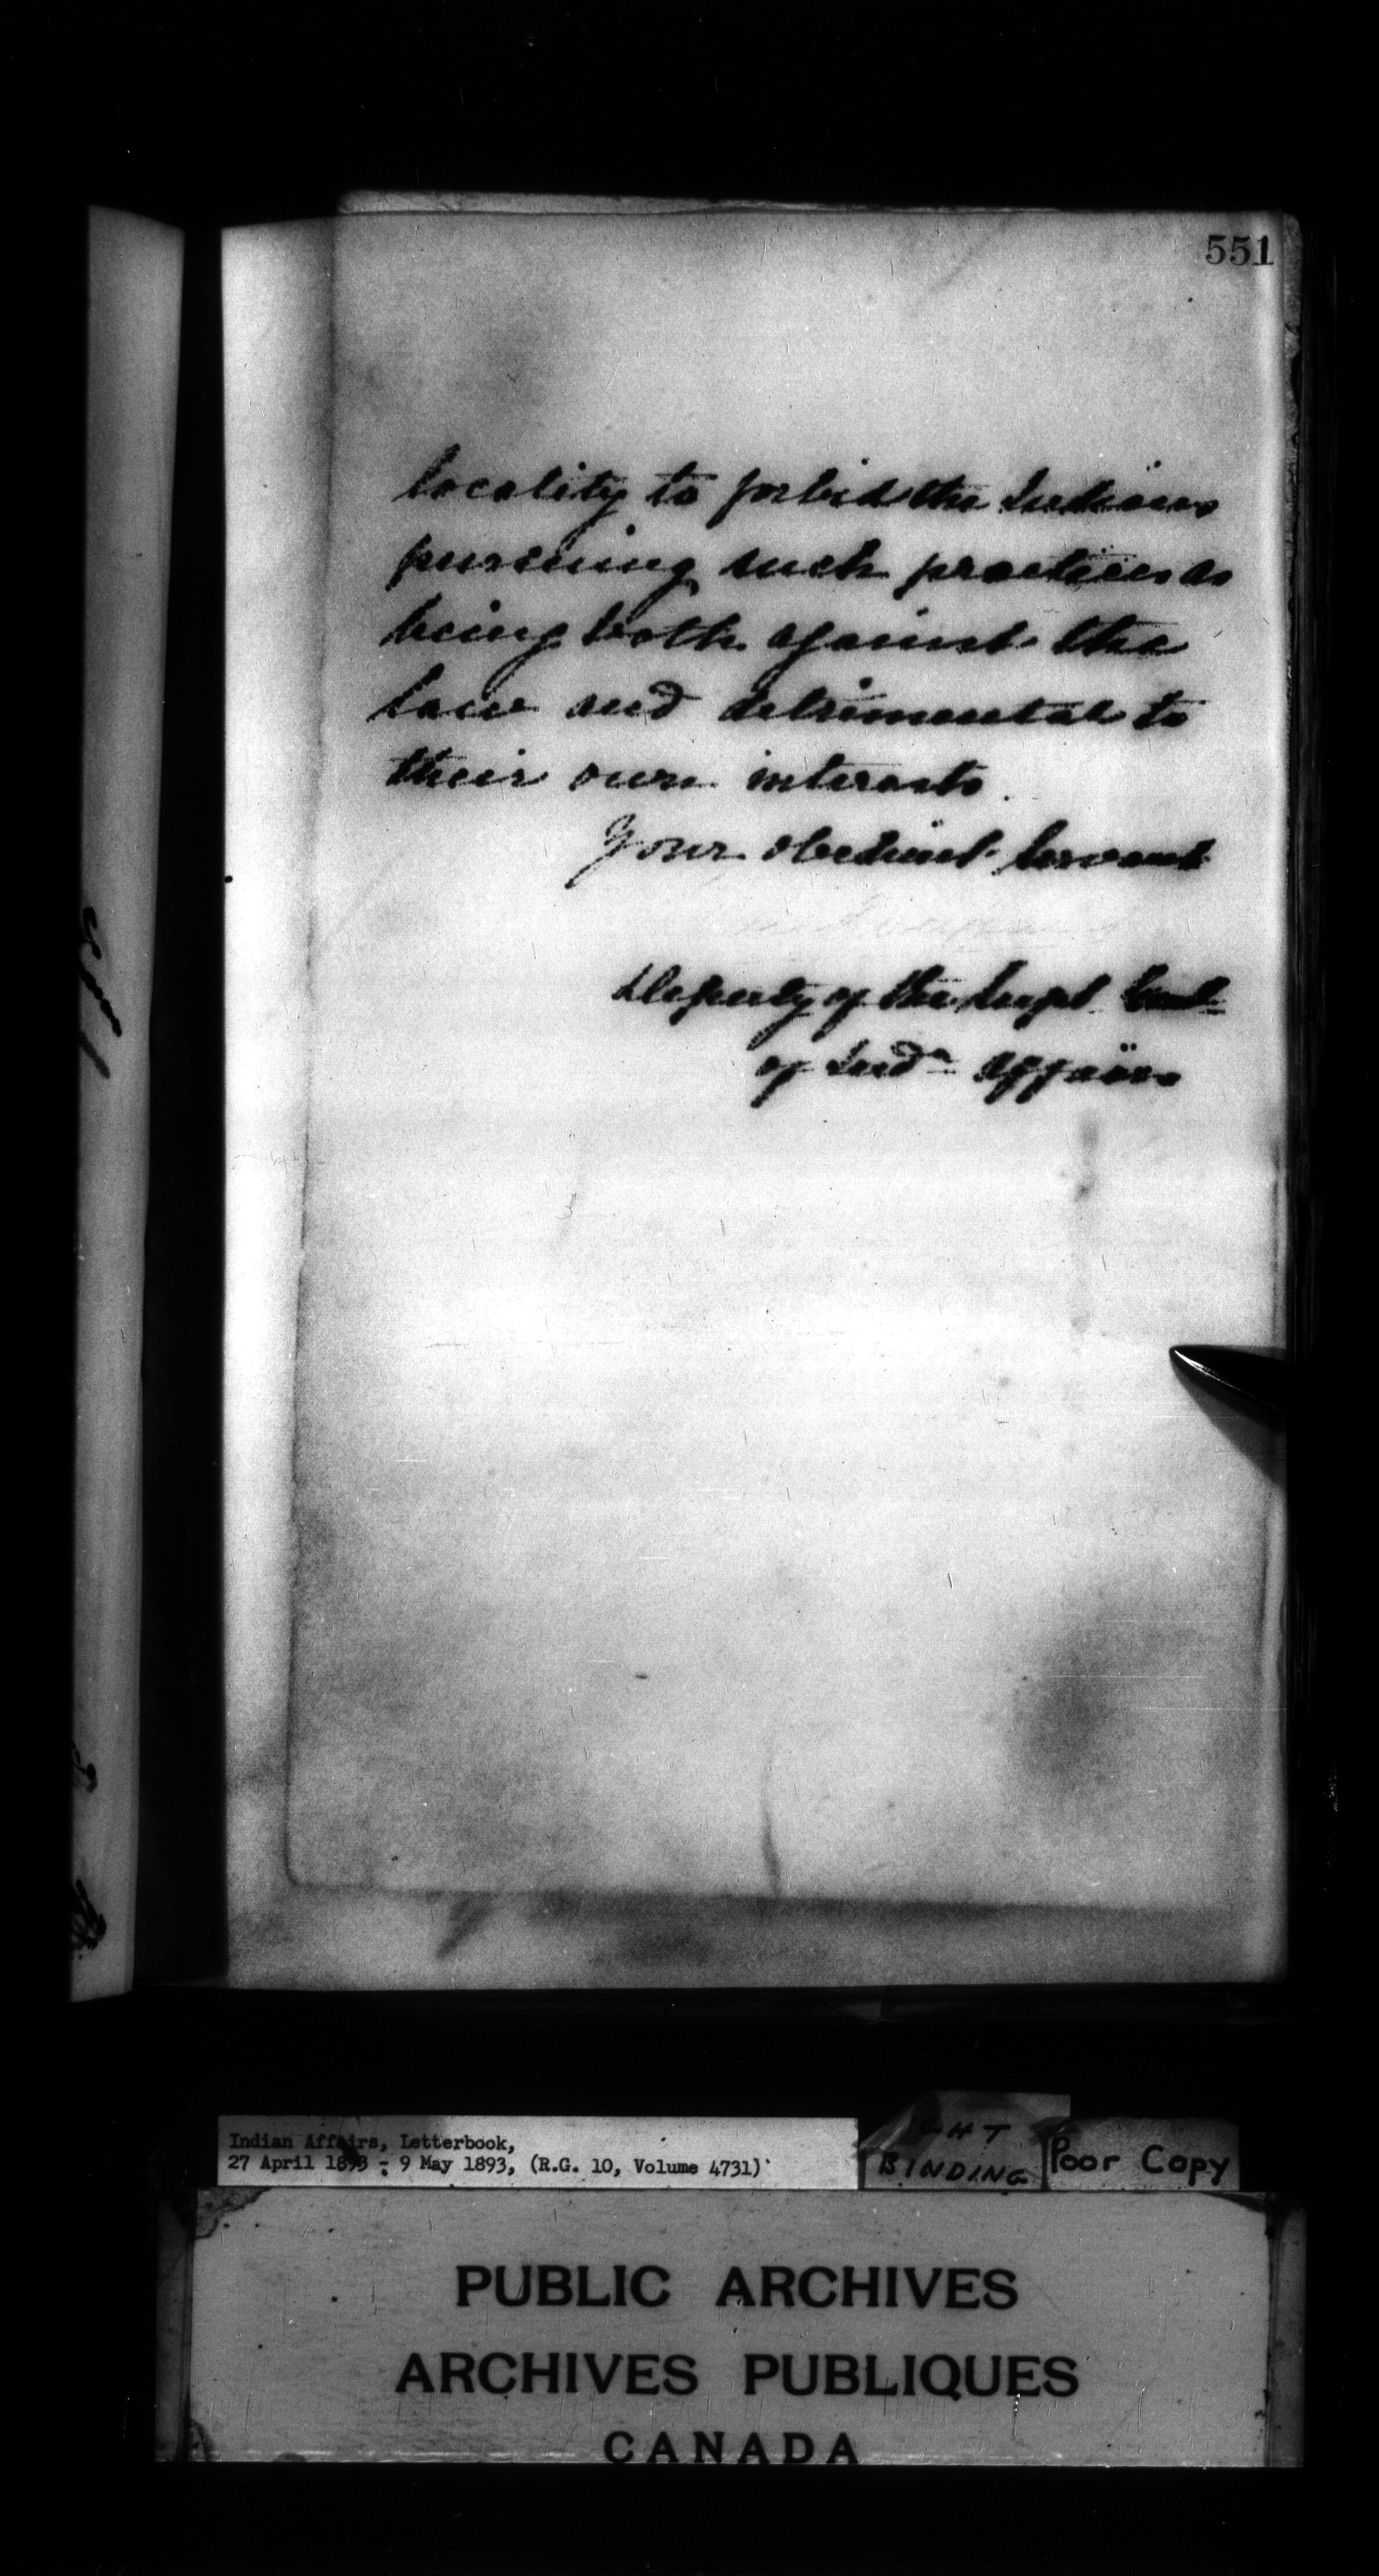 551
locality to forbid the Indians
pursuing such practices as
being both against the
law and detrimental to
their own interests.
Your obedient servant
Deputy of the Supt. Genl.
of Indn Affairs
Indian Affairs, Letterbook,
27 April 1893 - 9 May 1893, (R.G. 10, Volume 4731)
GHT
BINDING
Poor Copy
PUBLIC ARCHIVES
ARCHIVES PUBLIQUES
CANADA